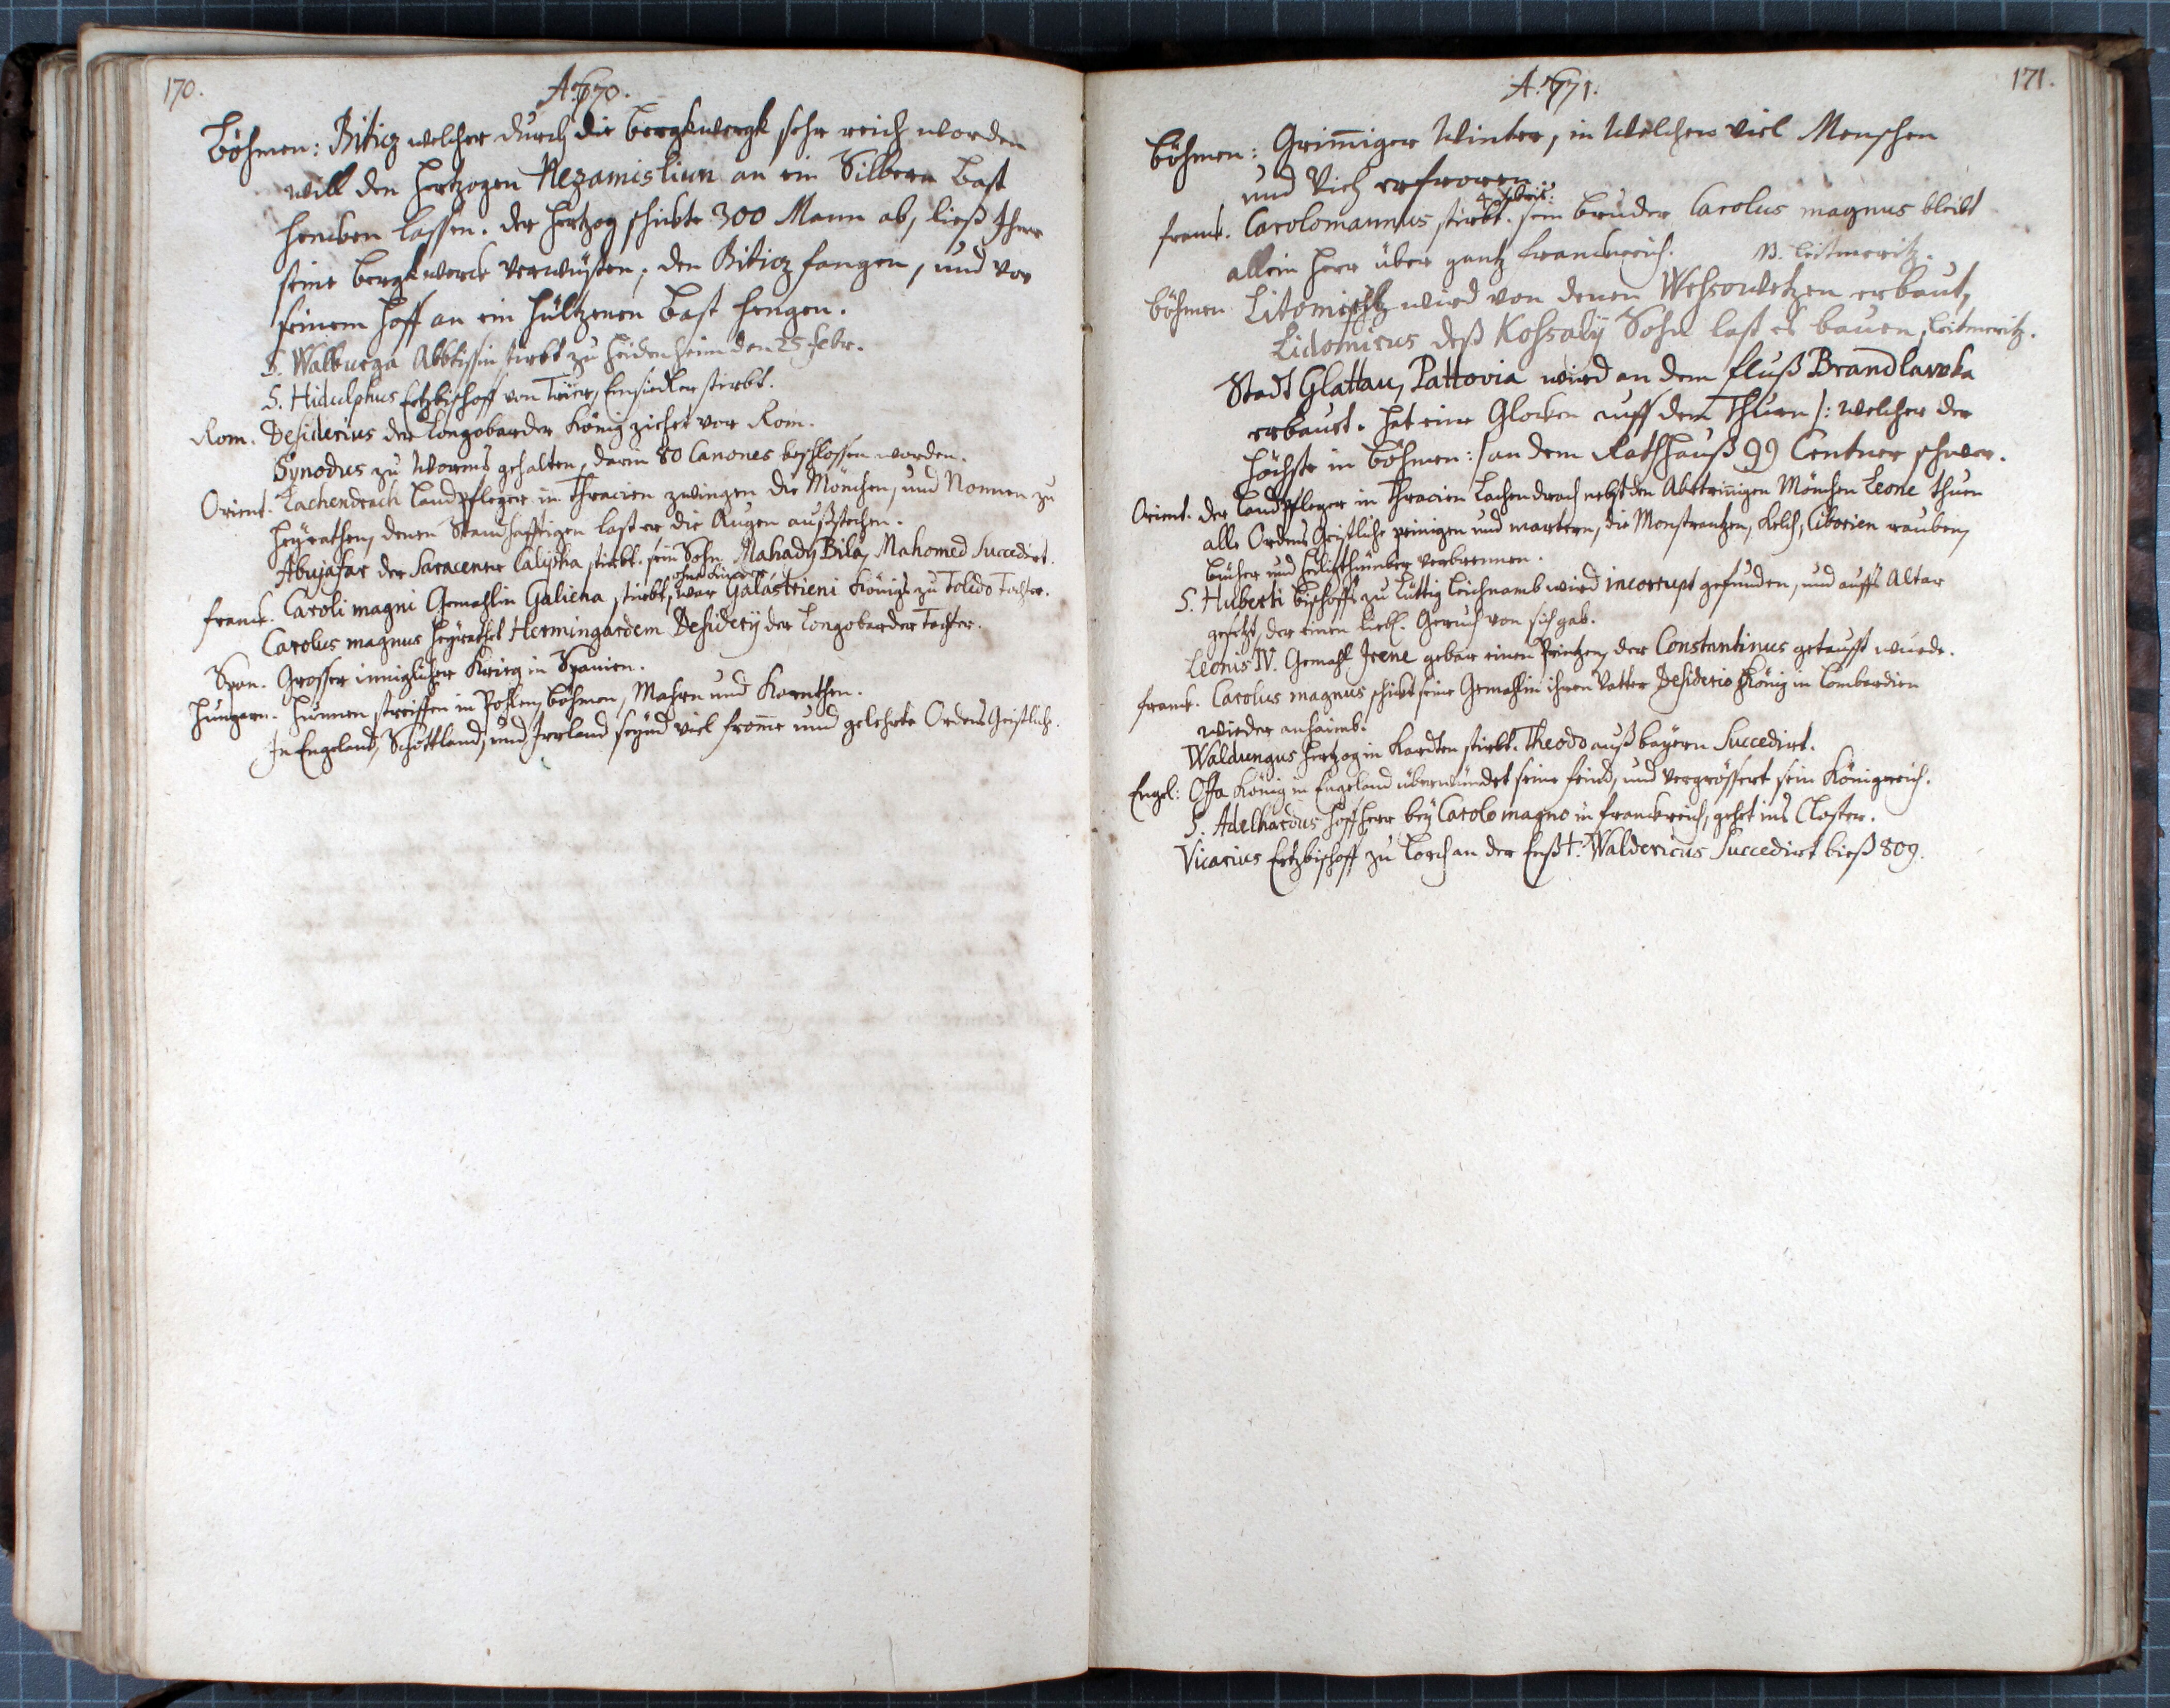 170.
A: 770.
Böhmen: Bitioz welcher durch die bergkwergk sehr reich worden
will den Hertzogen Nezamislium an ein Silbern Bast
hencken lassen. der Hertzog schickte 300 Mann ab, ließ Ihme
seine bergkwerck verwüsten, den Bitioz fangen, und vor
seinem Hoff an ein hültzenen Bast hengen.
S. Walburga Abbtissin stirbt zu Heidenheim den 25 Febr.
S. Hidulphus Ertzbischoff von Trier, Einsiedler stirbt.
Rom. Desiderius der Longobarder König ziehet vor Rom.
Synodus zu Worms gehalten, darin 80 Canones beschlossen worden.
Orient. Lachendrach Landpfleger in Thracien zwingen die Mönchen, und Nonnen zu
heyrathen, denen Standhafftigen last er die Augen außstechen.
Abujafar der Saracener Calipha stirbt. sein Sohn Mahady Bila, Mahomed Succedirt.
ohne Kinder
Franck. Caroli magni Gemahlin Galiena stirbt, war Galastrieni Königs zu Toledo Tochter.
Carolus magnus heyrathet Hermingardem Desiderÿ der Longobarder Tochter.
Span. Grosser innerlicher Krieg in Spanien.
Hungarn. Hunnen streiffen in Pohlen, Böhmen, Mähren und Kärnthen.
In Engeland, Schottland, und Irrland seynd viel fromme und gelehrte Ordens Geistliche.
171.
A: 771.
Böhmen: Grim̄iger Winter, in Welchen viel Menschen
und Vieh erfroren.
4 Xbris:
franck. Carolomannus stirbt. sein bruder Carolus magnus bleibt
allein Herr über gantz Franckreich. NB. Leitmeritz.
böhmen Litomischl wird von denen Wehsowetzen erbaut,
Lidomirus deß Kohsalÿ Sohn last es bauen, Leitmeritz.
Stadt Glattau, Pattovia wird an dem Fluß Brandlawka
erbaut. Hat eine Glocken auff dem Thurn /: welcher der
höchste in Böhmen :/ an dem Rathhauß 99 Centner schwer.
Orient. der Landpfleger in Thracien Lachendrach nebst den Abtrinigen Mönchen Leone thuen
alle Ordens Geistliche peinigen und martern, die Monstrantzen, Kelch, Ciborien rauben,
bücher und Heiligthümber verbrennen.
S. Huberti bischoffs zu Lüttig Leichnamb wird incorrupt gefunden, und auffs Altar
gesetzt, der einen liebl. Geruch von sich gab.
Leonis IV. Gemahl Irene gebar einen Printzen, der Constantinus getaufft wurde.
franck. Carolus magnus schickt seine Gemahlin ihren Vatter Desiderio König in Lombardien
wieder anheimb.
Waldungus Hertzog in Kärdten stirbt. Theodo auß bayern Succedirt.
Engel: Offa König in Engeland überwindet seine feind, und vergrössert sein Königreich.
S. Adelhardus Hoffherr bey Carolo magno in franckreich, gehet ins Closter.
Vicarius Ertzbischoff zu Lorch an der Enß †. Waldericus Succedirt bieß 809.